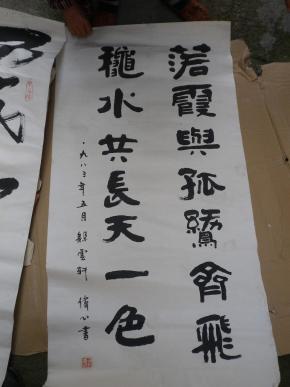 落霞與孤鶩齊飛
秋水共長天一色
一九八三年五月 雲軒 書